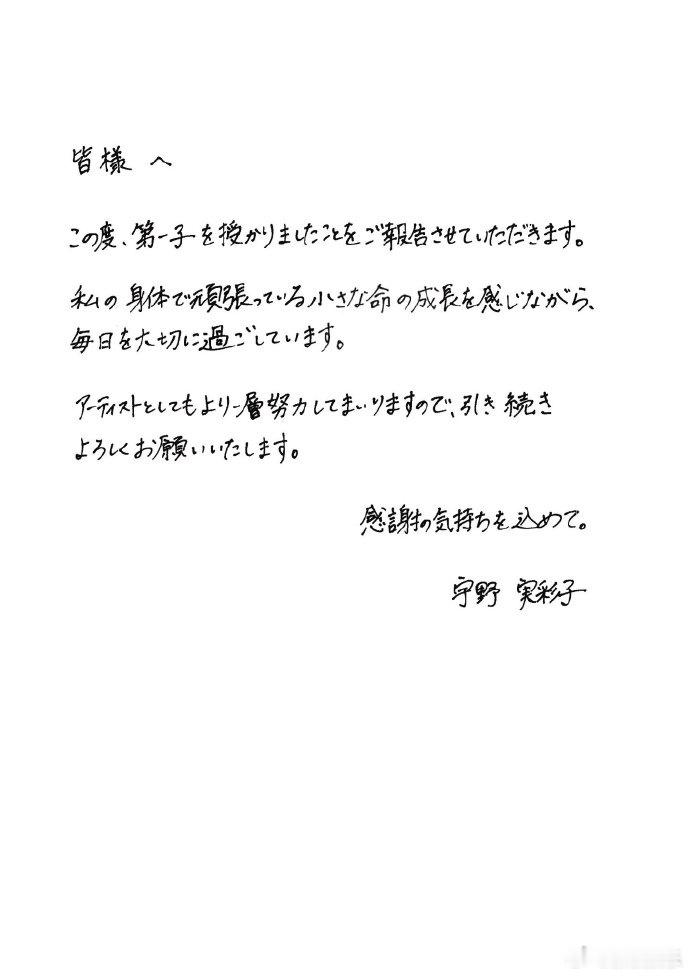 皆様 へ
この度、第一子を授かりましたことをご報告させていただきます。
私の身体で頑張っている小さな命の成長を感じながら、
毎日を大切に過ごしています。
アーティストとしてもより一層努力してまいりますので、引き続き
よろしくお願いいたします。
感謝の気持ちを込めて。
宇野 実彩子